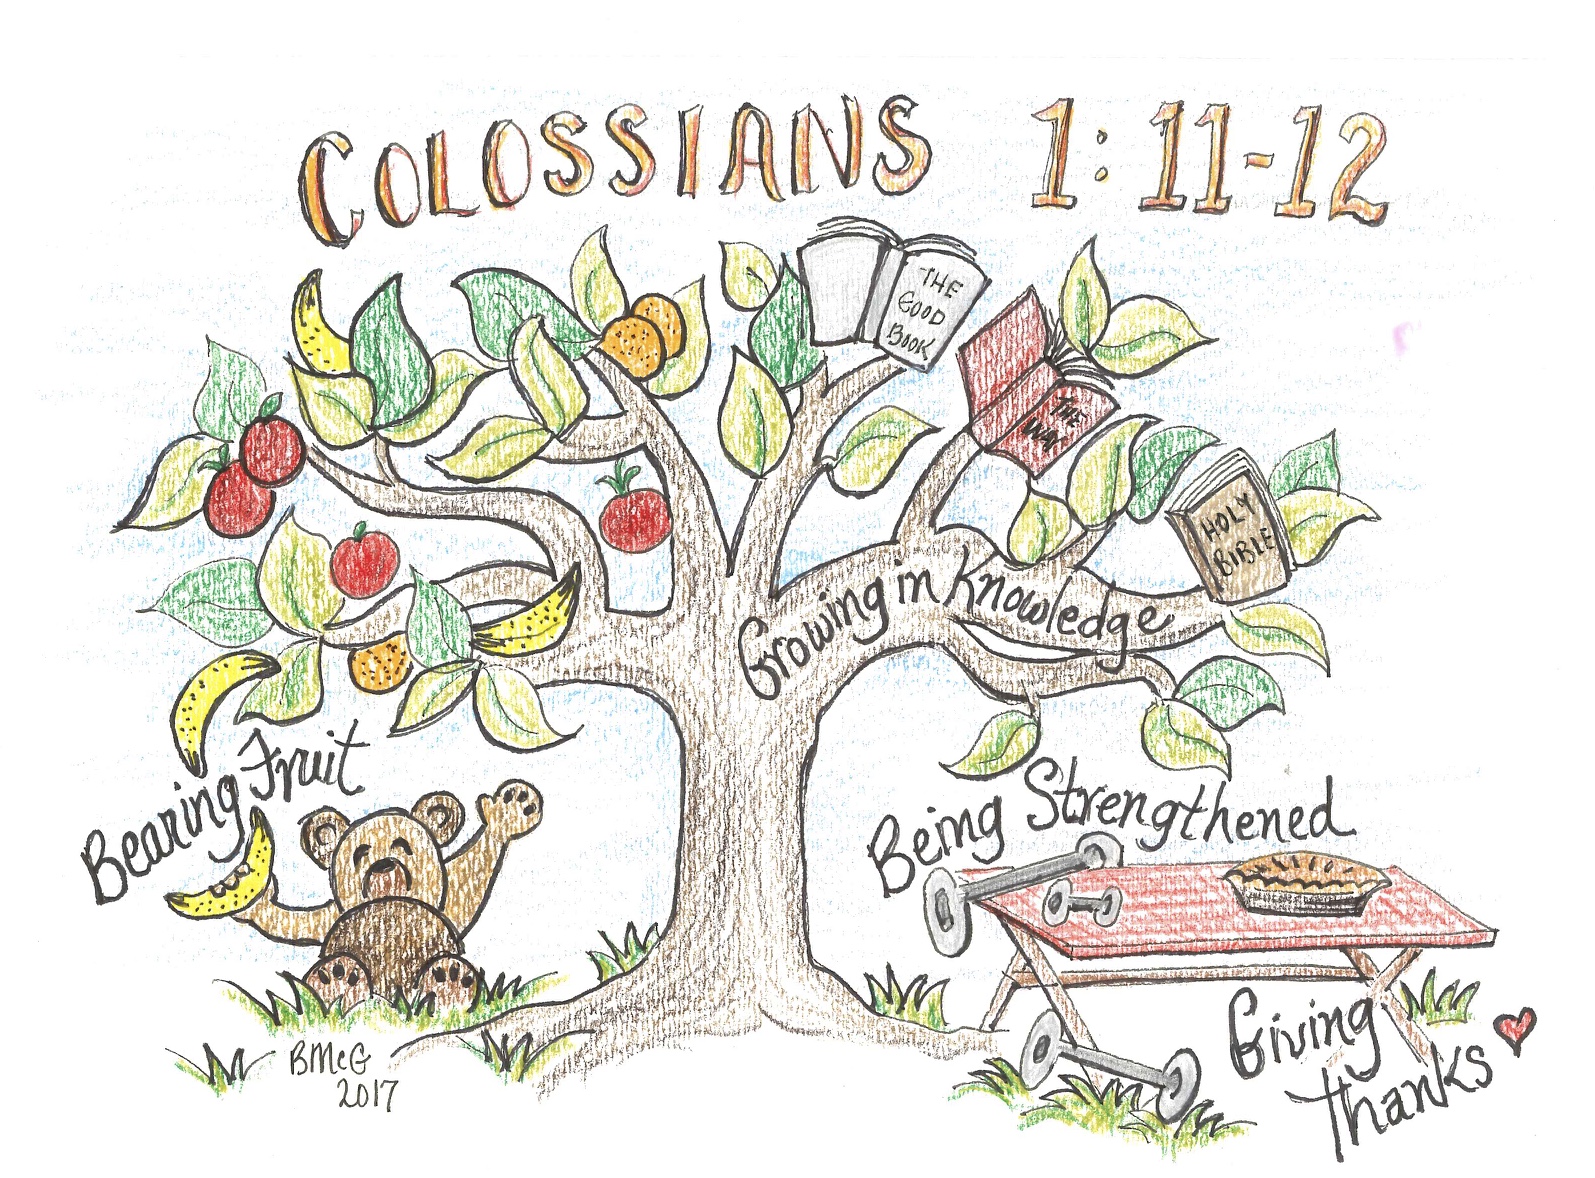 COLOSSIANS 1:11-12
THE
GOOD
BOOK
THE
WAY
HOLY
BIBLE
Growing in Knowledge
Bearing Fruit
Being Strengthened
Giving
Thanks
BMcG
2017